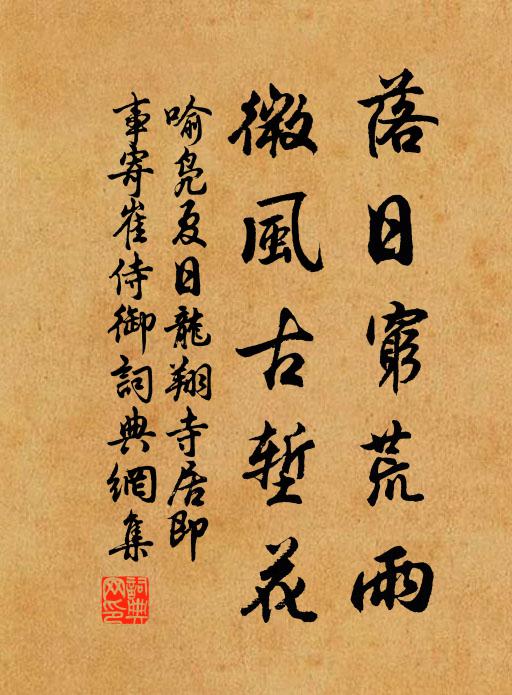 落日窮荒雨
微風古塹花
喻鳧夏日龍翔寺居即
事寄崔侍御詞典網集
詞典網印